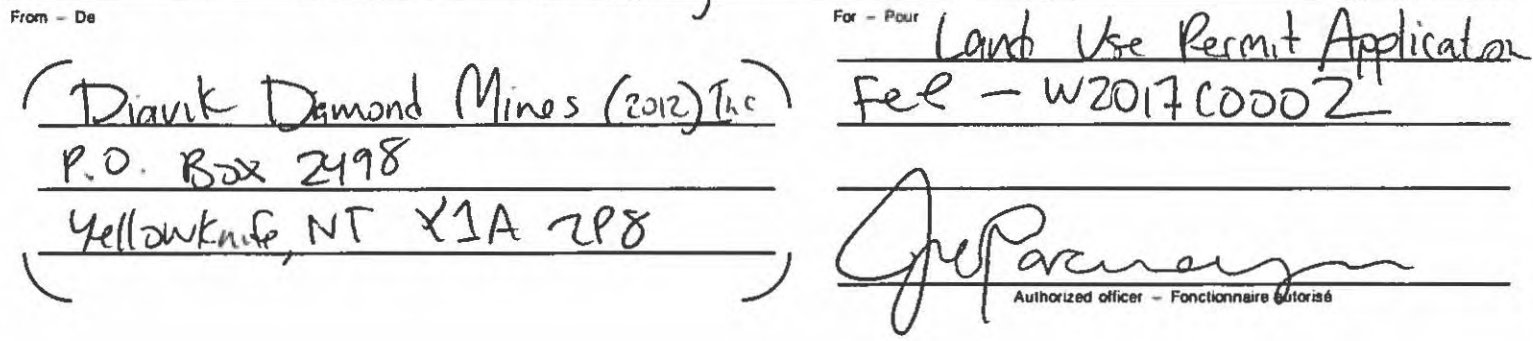 From – De
Diavik Damond Mines (2012) Inc
P.O. Box 2498
Yellowknife, NT X1A 2P8
For – Pour
Land Use Permit Application
Fee – W2017C0002
Authorized officer – Fonctionnaire autorisé